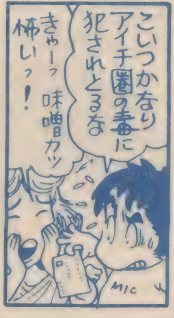 こいつかなり
アイチ圏の毒に
犯されとるな
きゃーっ 味噌カツ
怖いっ！
MIC